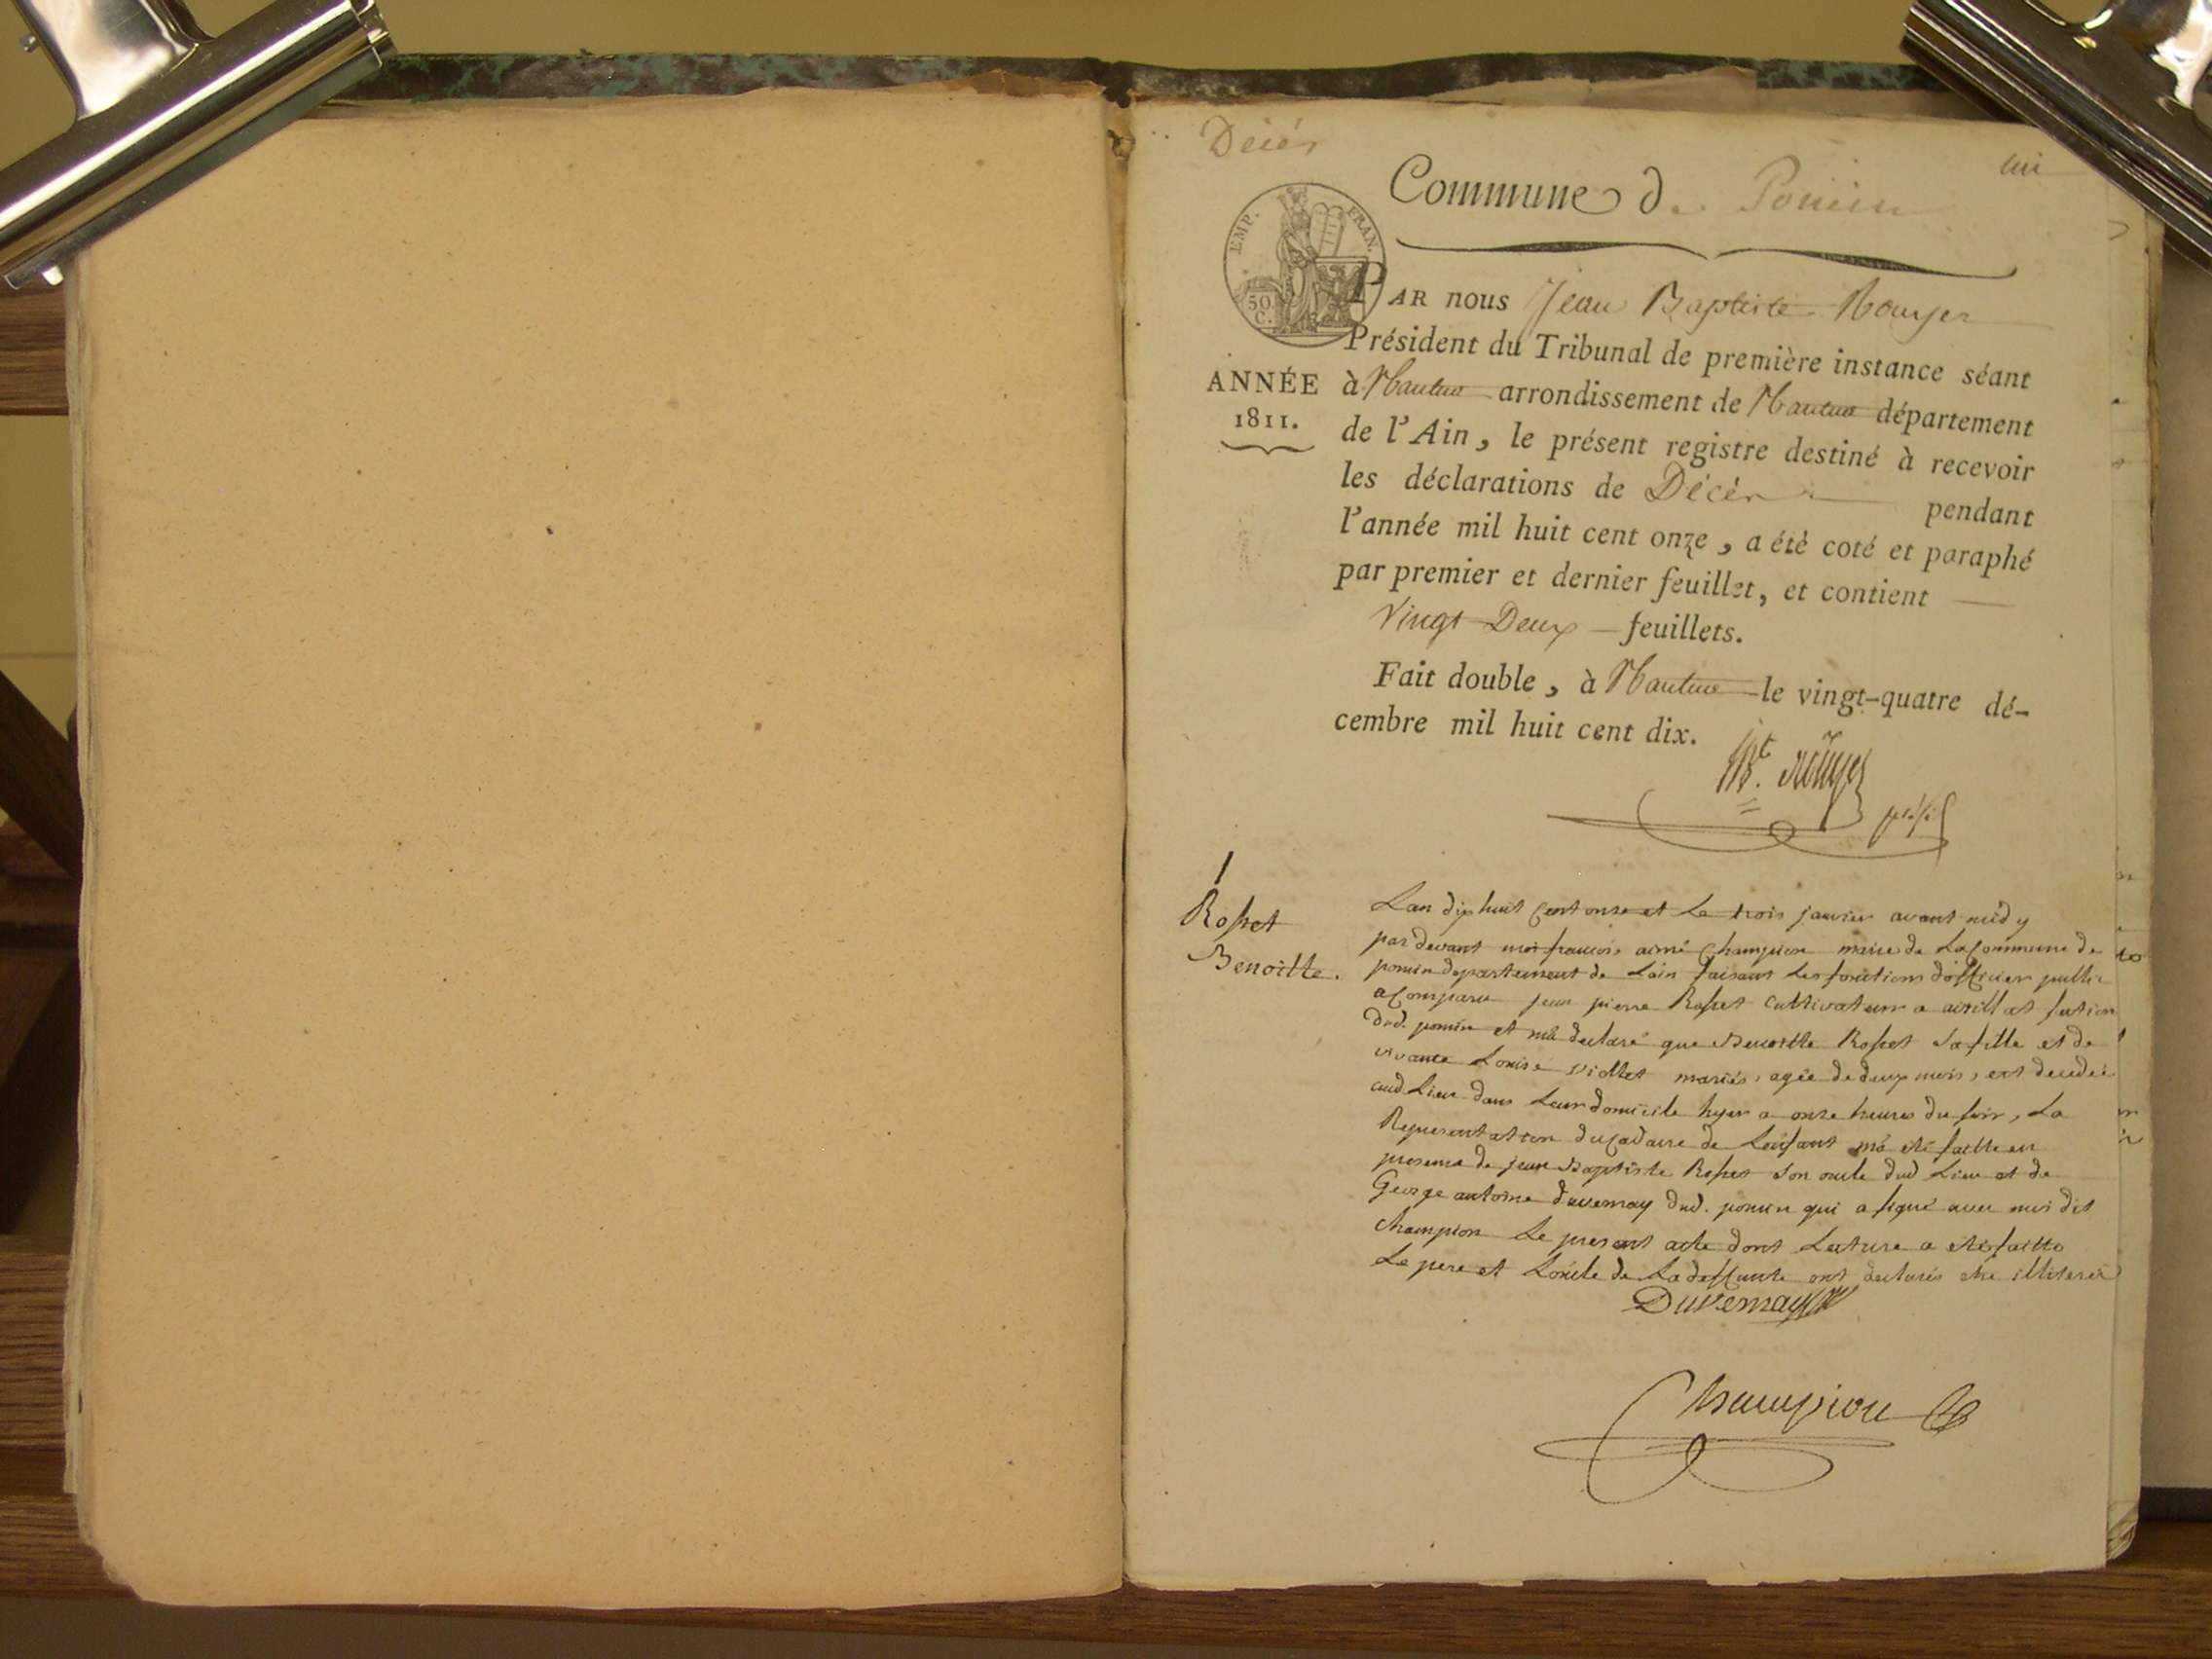 Décés
un
Commune de Poncin
EMP. FRAN.
50 C.
PAR nous Jean Baptiste Rouyer
Président du Tribunal de première instance séant
ANNÉE
1811.
à Nantua arrondissement de Nantua département
de l'Ain, le présent registre destiné à recevoir
les déclarations de Décés pendant
l'année mil huit cent onze, a été coté et paraphé
par premier et dernier feuillet, et contient
Vingt Deux feuillets.
Fait double, à Nantua le vingt-quatre dé-
cembre mil huit cent dix.
Bt. Rouyer
présit
1
Rosset
Benoitte.
Lan dix huit cent onze et Le trois janvier avant midy
par devant moi francois aimé Champion maire de La commune de
poncin departement de Lain faisant Les fonctions d'officier public
a comparu jean pierre Rosset cultivateur a section
dud. poncin et m'a declaré que Benoitte Rosset sa fille et de
vivante Louise viollet mariés, agée de deux mois, est decedée
aud Lieu dans Leur domicile hyer a onze heures du soir, La
Representation du cadavre de Lenfant m'a été faitte en
presence de jean Baptiste Rosset son oncle dud Lieu et de
George antoine duvernay dud. poncin qui a signé avec moi dit
Champion Le present acte dont Lecture a été faitte
Le pere et Loncle de La deffunte ont declarés etre illiterés
Duvernay
Champion